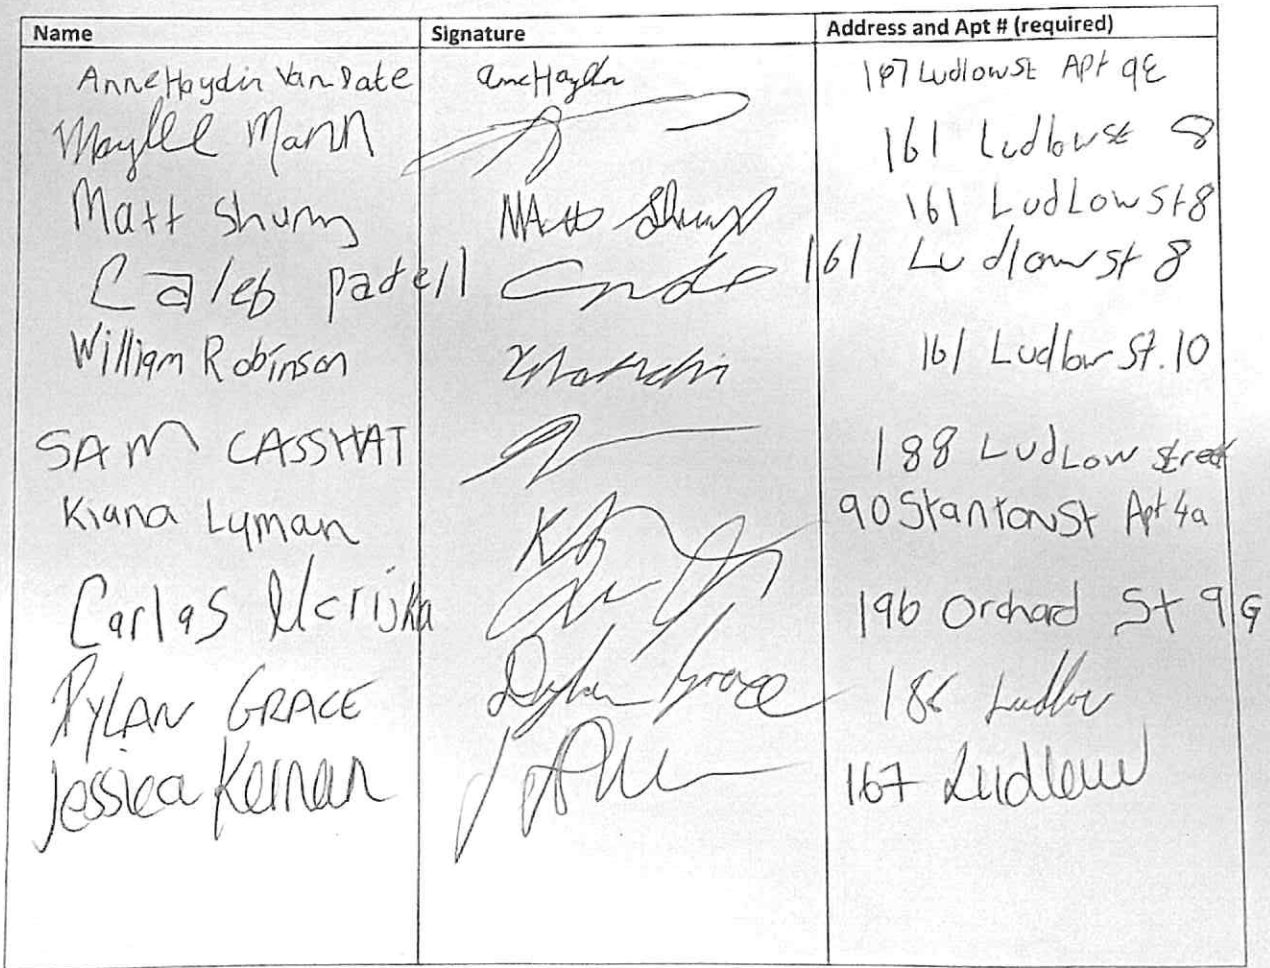 Name Signature Address and Apt # (required)
Anne Haydin Van Date Anne Haydin 167 Ludlow St Apt 9E
Maylee Mann 161 Ludlow St 8
Matt Shum Matt Shum 161 LudLow St 8
Caleb Patell 161 Ludlow St 8
William Robinson 161 Ludlow St. 10
SAM CASSHAT 188 LudLow Street
Kiana Lyman 90 Stanton St Apt 4a
Carlas 196 Orchard St 9G
DYLAN GRACE Dylan Grace 186 Ludlow
Jessica Kernan 167 Ludlow